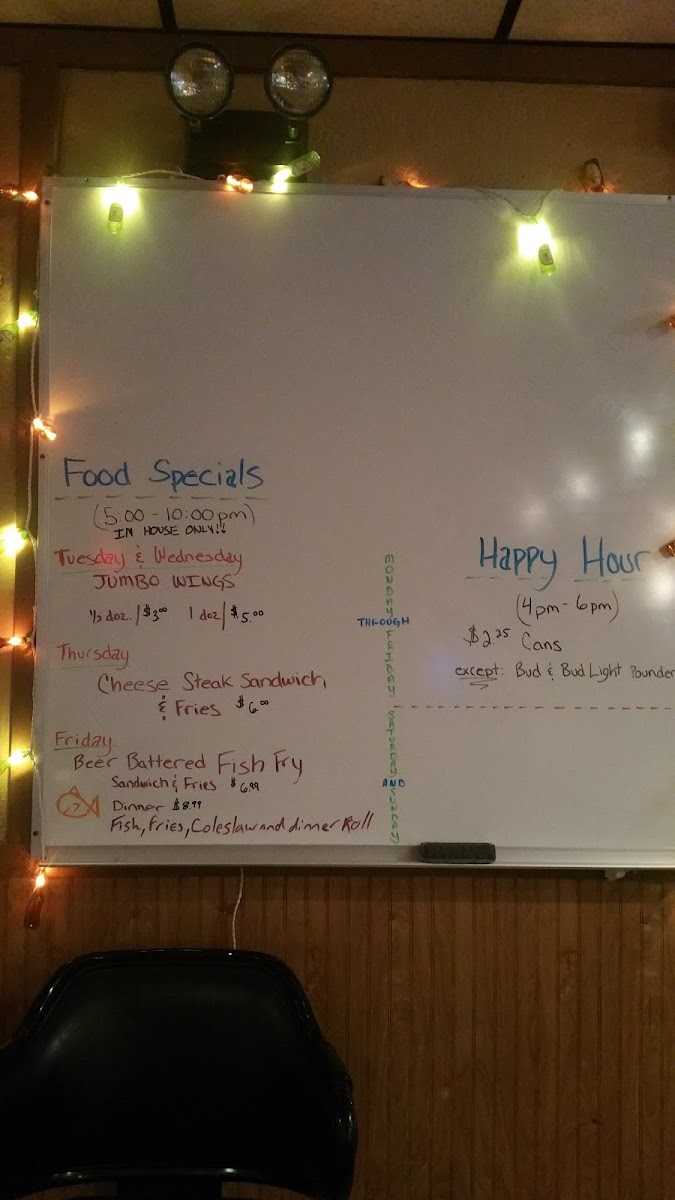 Food Specials
(5:00 - 10:00 pm)
IN HOUSE ONLY!!
Tuesday & Wednesday
JUMBO WINGS
1/2 doz. / $3.00 1 doz / $5.00
Thursday
Cheese Steak Sandwich
& Fries $6.00
Friday
Beer Battered Fish Fry
Sandwich & Fries $6.99
Dinner $8.99
Fish, Fries, Coleslaw and dinner Roll
MONDAY
THROUGH
FRIDAY
SATURDAY
AND
SUNDAY
Happy Hour
(4pm - 6pm)
$2.25 Cans
except: Bud & Bud Light Pounder